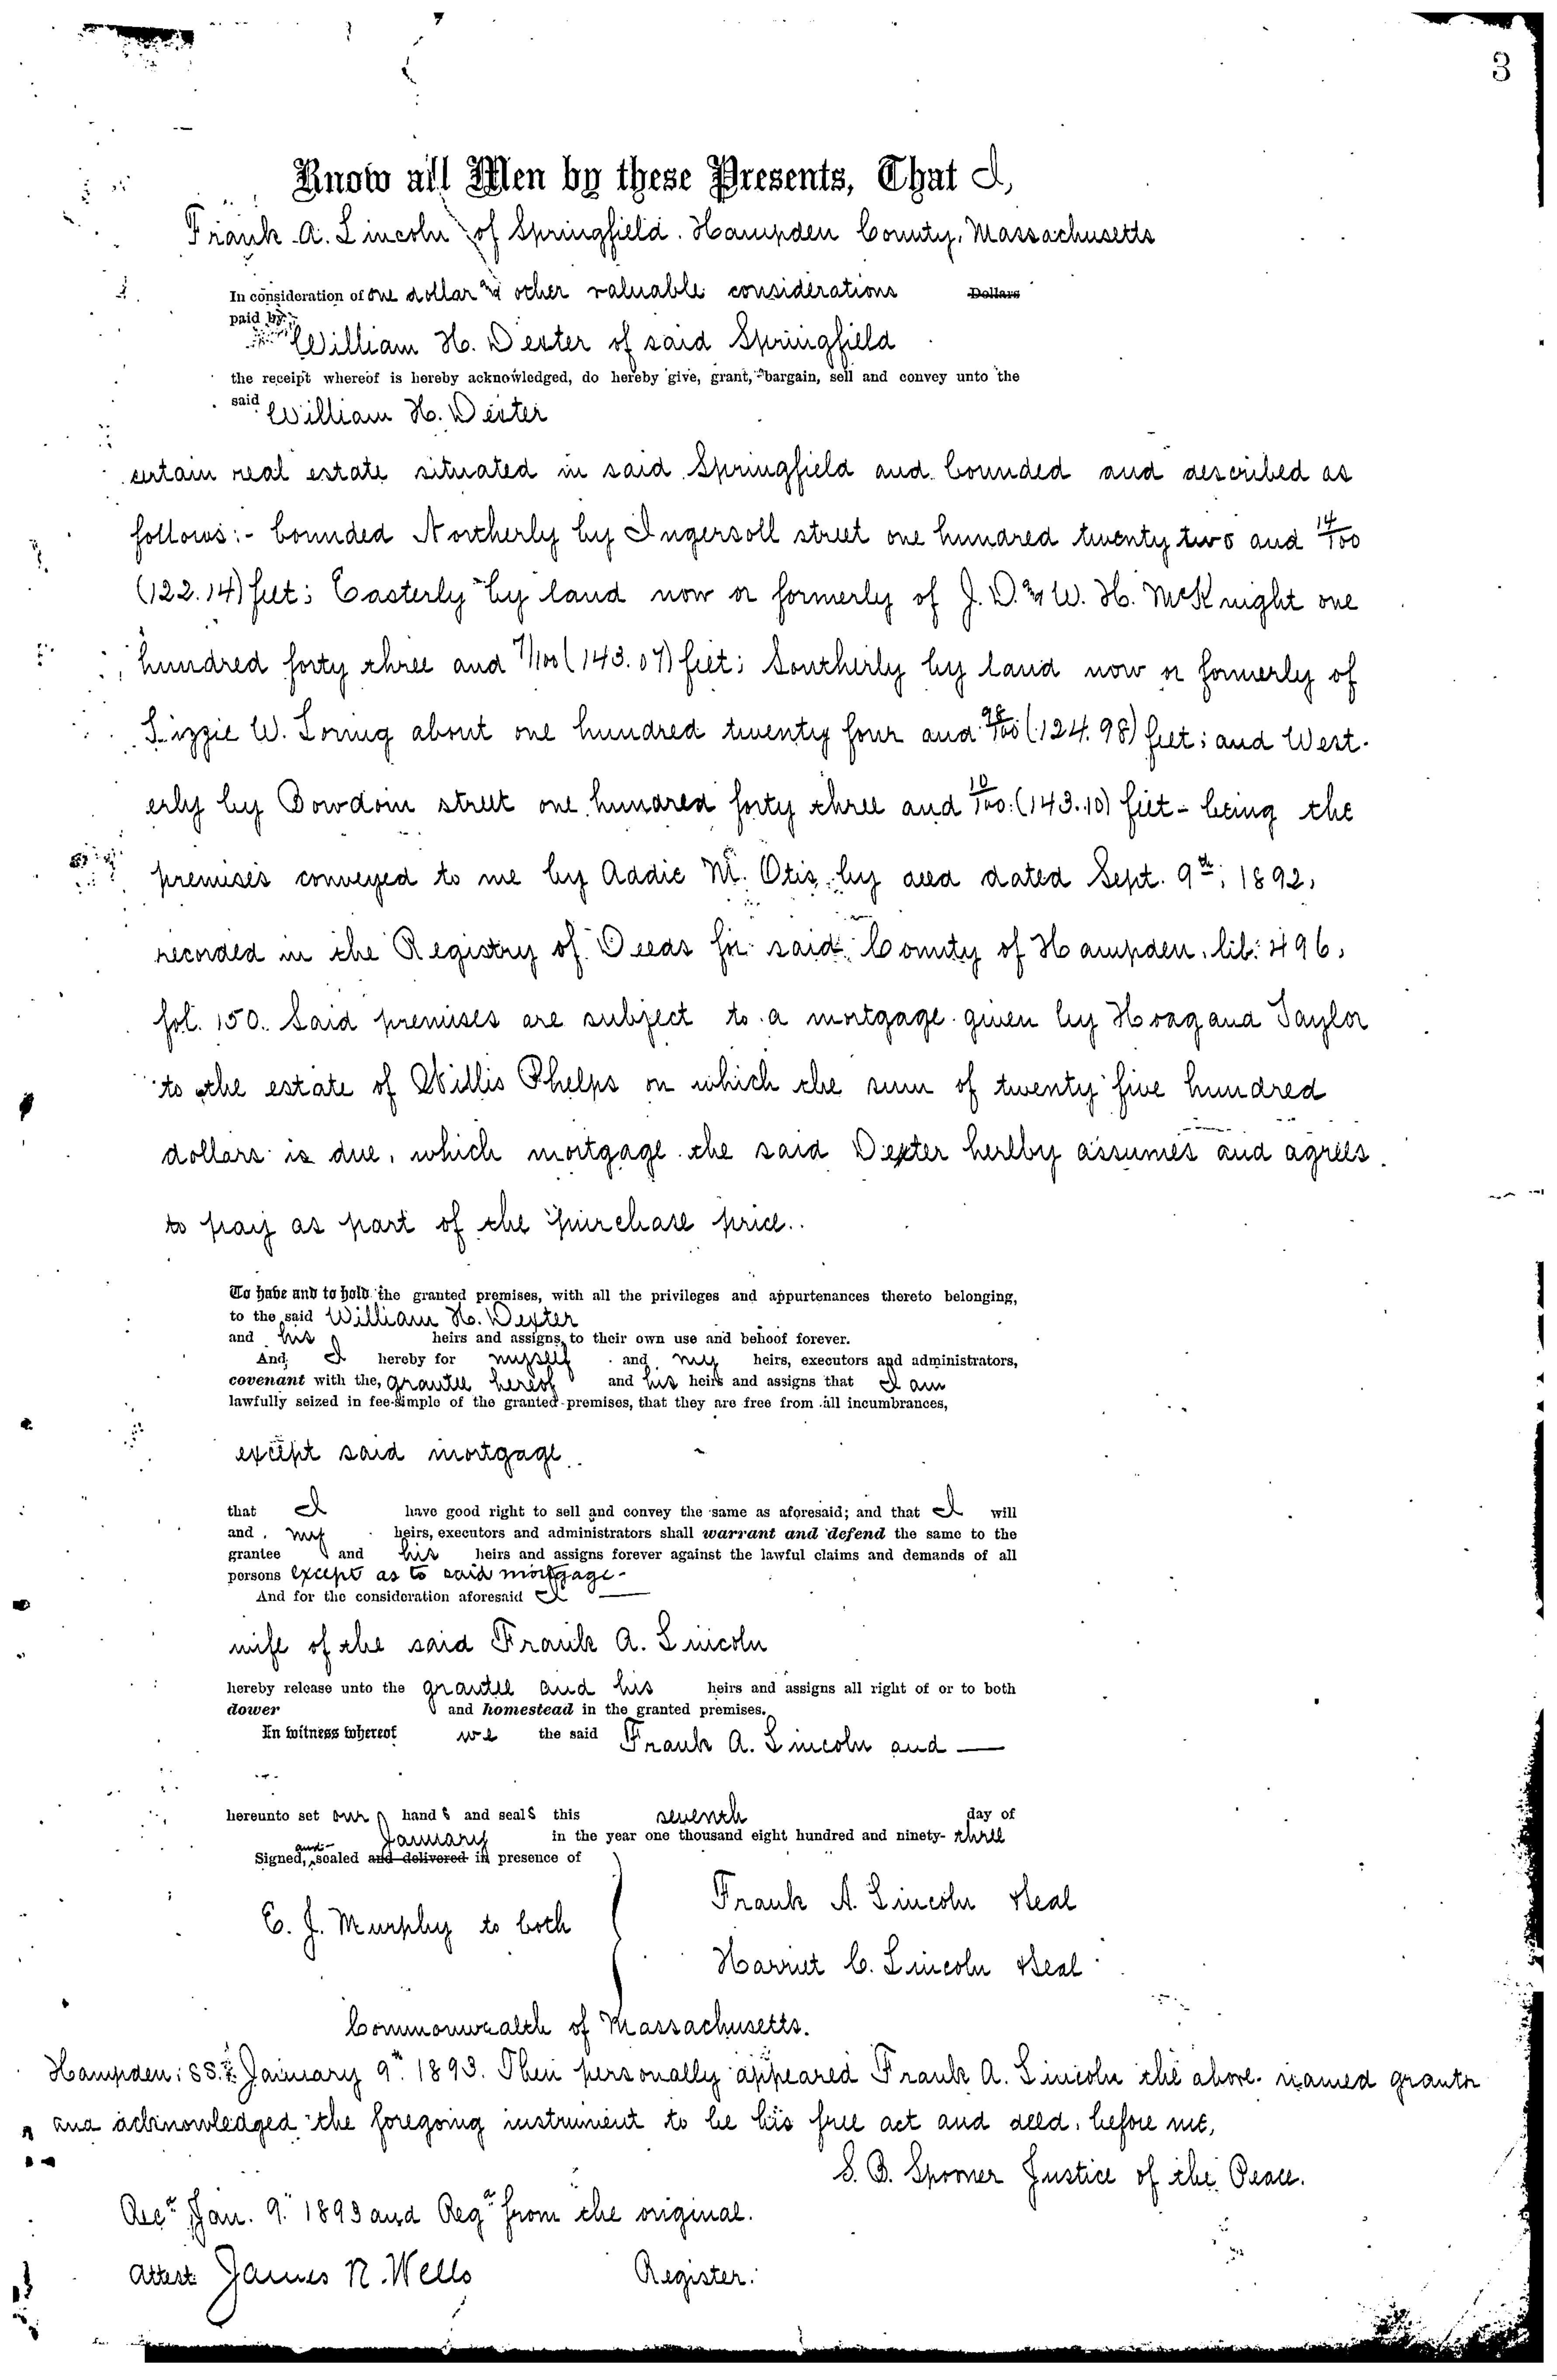 3
Know all Men by these Presents, That I,
Frank A. Lincoln of Springfield. Hampden County, Massachusetts
In consideration of one dollar & other valuable considerations Dollars
paid by
William H. Dexter of said Springfield
the receipt whereof is hereby acknowledged, do hereby give, grant, bargain, sell and convey unto the
said William H. Dexter
certain real estate situated in said Springfield and bounded and described as
follows:- bounded Northerly by Ingersoll street one hundred twenty two and 14/100
(122.14) feet; Easterly by land now or formerly of J. D. & W. H. McKnight one
hundred forty three and 7/100 (143.07) feet; Southerly by land now or formerly of
Lizzie W. Loring about one hundred twenty four and 98/100 (124.98) feet; and West-
erly by Bowdoin street one hundred forty three and 10/100 (143.10) feet - being the
premises conveyed to me by Addie M. Otis by deed dated Sept. 9th, 1892,
recorded in the Registry of Deeds for said County of Hampden, lib. 496,
fol. 150. Said premises are subject to a mortgage given by Hoag and Taylor
to the estate of Willis Phelps on which the sum of twenty five hundred
dollars is due, which mortgage the said Dexter hereby assumes and agrees
to pay as part of the purchase price.
To have and to hold the granted premises, with all the privileges and appurtenances thereto belonging,
to the said William H. Dexter
and his heirs and assigns, to their own use and behoof forever.
And I hereby for myself and my heirs, executors and administrators,
covenant with the grantee hereof and his heirs and assigns that I am
lawfully seized in fee-simple of the granted premises, that they are free from all incumbrances,
except said mortgage
that I have good right to sell and convey the same as aforesaid; and that I will
and my heirs, executors and administrators shall warrant and defend the same to the
grantee and his heirs and assigns forever against the lawful claims and demands of all
persons except as to said mortgage-
And for the consideration aforesaid I
wife of the said Frank A. Lincoln
hereby release unto the grantee and his heirs and assigns all right of or to both
dower and homestead in the granted premises.
In witness whereof we the said Frank A. Lincoln and
hereunto set our hands and seals this seventh day of
January in the year one thousand eight hundred and ninety-three
Signed, and sealed and delivered in presence of
E. J. Murphy to both
Frank A. Lincoln Seal
Harriet C. Lincoln Seal
Commonwealth of Massachusetts.
Hampden: SS. January 9th 1893. Then personally appeared Frank A. Lincoln the above named grantor
and acknowledged the foregoing instrument to be his free act and deed, before me,
S. B. Spooner Justice of the Peace.
Recd Jan. 9th 1893 and Regd from the original.
Attest James R. Wells Register.